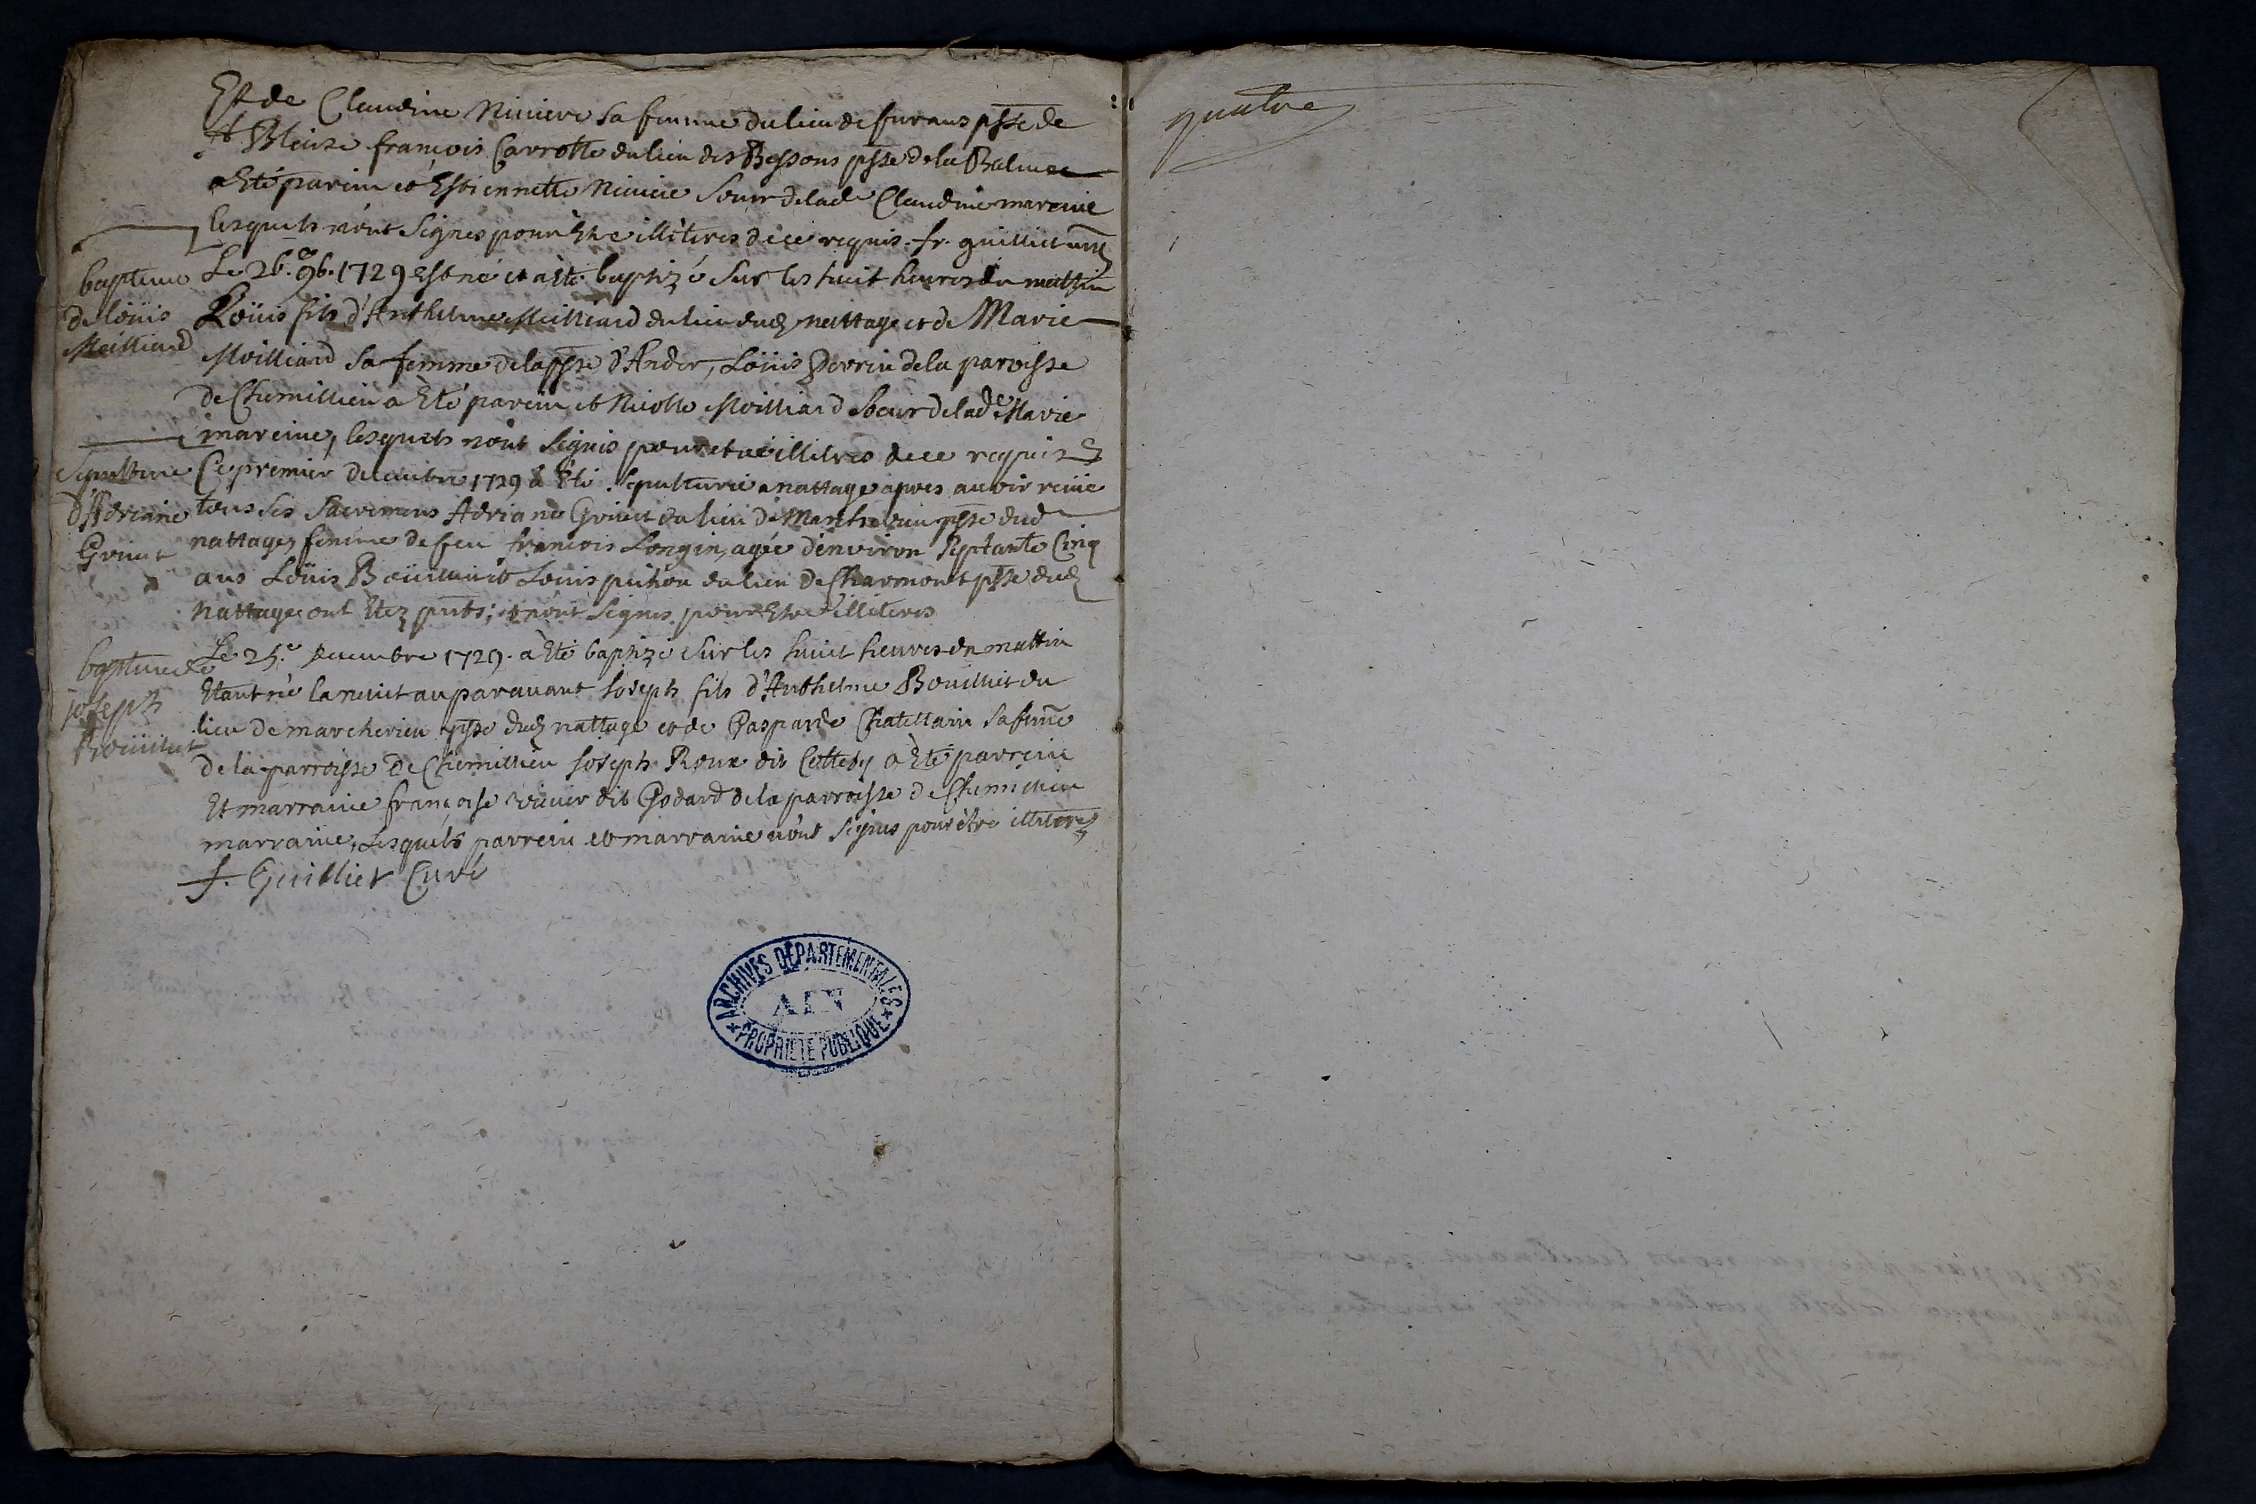 Et de Claudine Niviere sa femme du lieu de furans psse de
st Bleise françois Carrotte du lieu des Bessons psse dela Balme
a Eté parein et Estiennette Niviere soeur delad Claudine mareine
lesquels n'ont signés pour Etre illiteres de ce requis. fr. guilliet
baptime
de loüis
Meilliard
Le 26.e 9b. 1729 est né et a èté baptizé sur les huit heures du mattin
Loüis fils d'Anthelme Meilliard du lieu dud nattage et de Marie
Moilliard sa femme dela psse d'Ander, Loüis Perrin dela paroisse
de Chemillieu a Eté parein et Nicolle Moilliard soeur delade Marie
mareine, lesquels n'ont signés pour etre illitres de ce requis
sepulture
d'Adriane
Grinet
Ce premier decembre 1729 à Eté sepulturée a nattage apres auoir reçue
tous ses sacremens Adriane Grinet du lieu de psse dud
nattages femme de feu françois Longin, agée d'environ septante Cinq
ans Loüis et Louis pichon du lieu de Charmont psse dud
Nattages ont Etez pnts; et n'ont signes pour Etre illiteres
baptime de
joseph
Boüilliet
Le 25.e Decembre 1729. a Eté baptizé sur les huict heures du mattin
Etant né la nuict auparauant Joseph fils d'Anthelme Bouilliet du
lieu de marcherieu psse dud nattage et de Gasparde Chatellain sa fème
de la parroisse de Chemillieu Joseph Roux dit a Eté parrein
Et marraine françoise vivier dit Godard dela parroisse de Chemillieu
marraine, Lesquels parrein et marraine n'ont signes pour être illiteres
f. Guilliet Curé
ARCHIVES DÉPARTEMENTALES
AIN
PROPRIÉTÉ PUBLIQUE
quatre